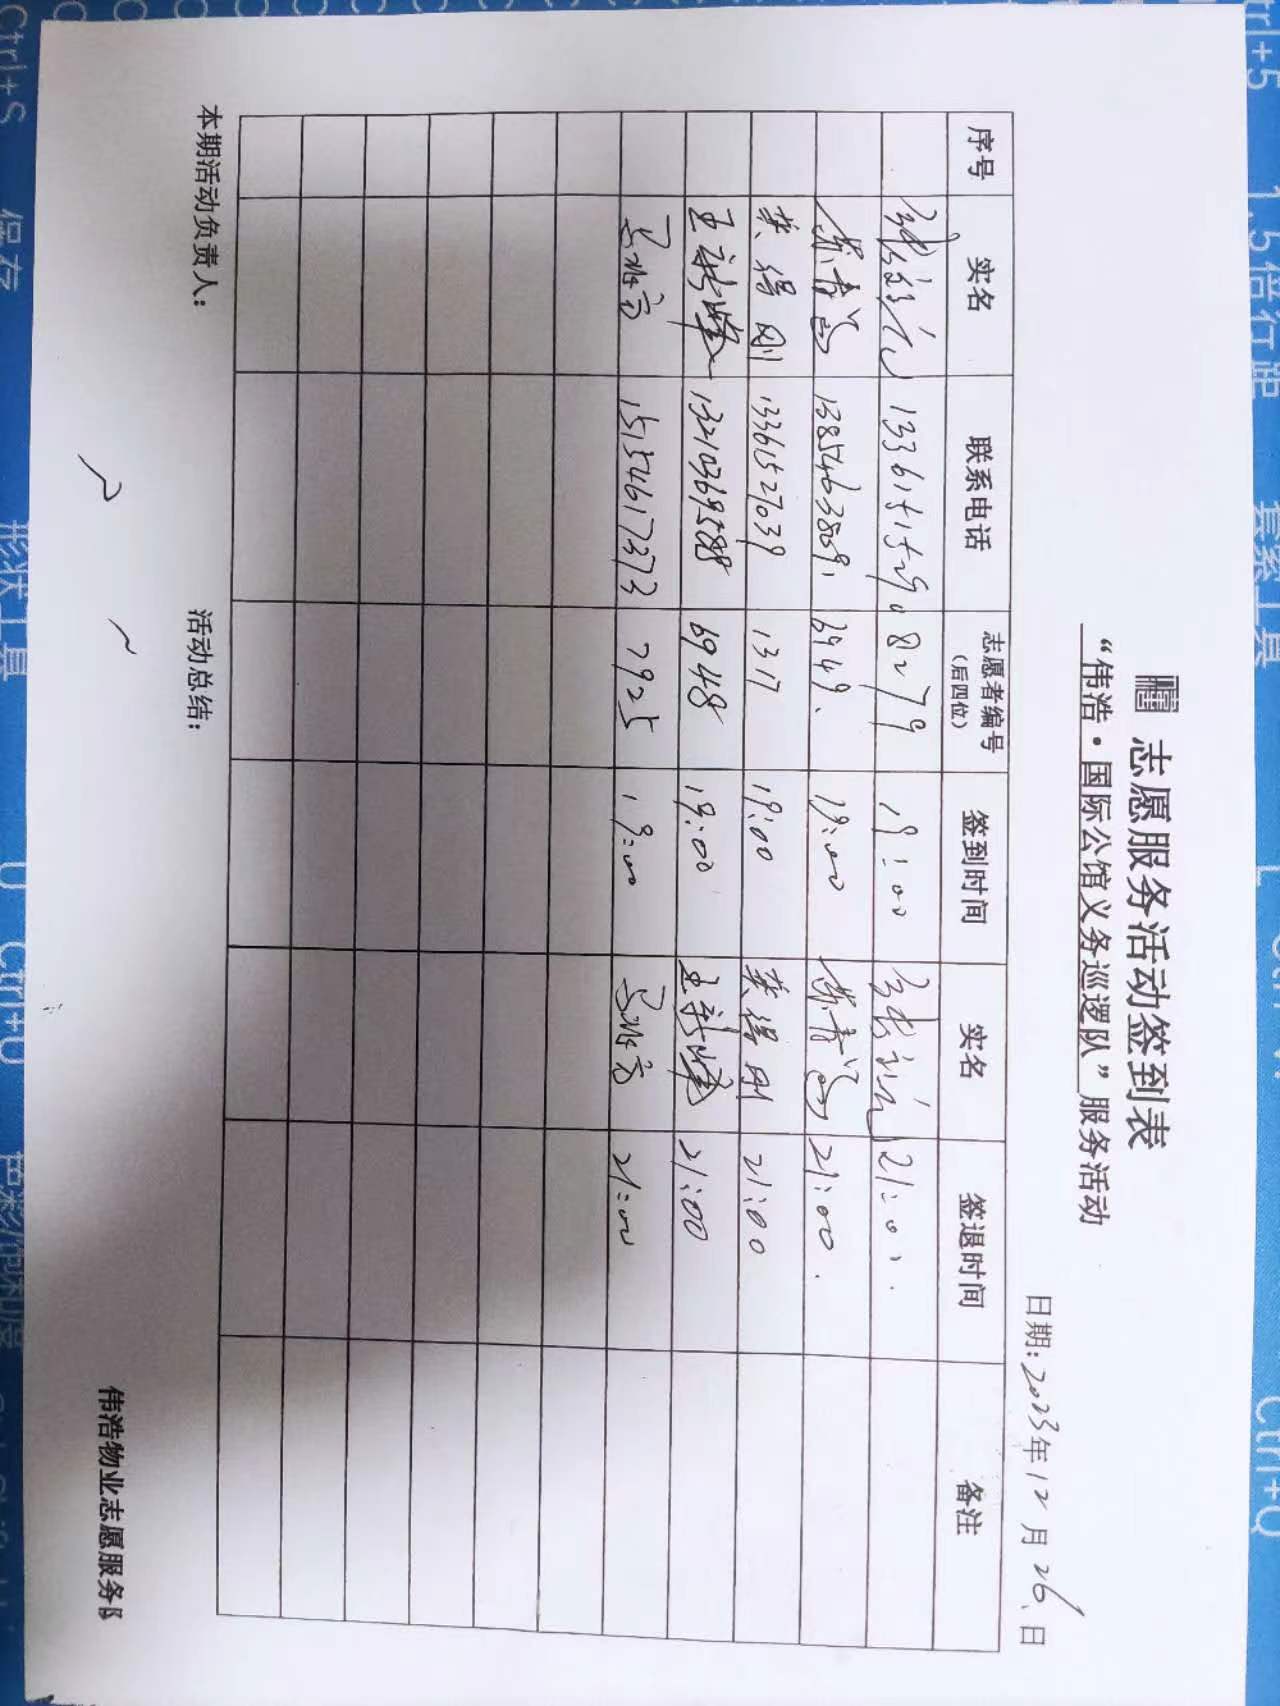 志愿服务活动签到表
“伟浩·国际公馆义务巡逻队”服务活动
日期:2023年12月26日
序号 实名 联系电话 志愿者编号(后四位) 签到时间 实名 签退时间 备注
13361515290 8279 19:00 21:00
13854638091 6949 19:00 21:00
樊得刚 13361527039 1317 19:00 樊得刚 21:00
王新峰 13210369588 6948 19:00 王新峰 21:00
15154617373 7925 19:00 21:00
本期活动负责人: 活动总结: 伟浩物业志愿服务队
Ctrl+S 保存 形状工具 U Ctrl+U
1.5倍行距 套索工具 Ctrl+Q